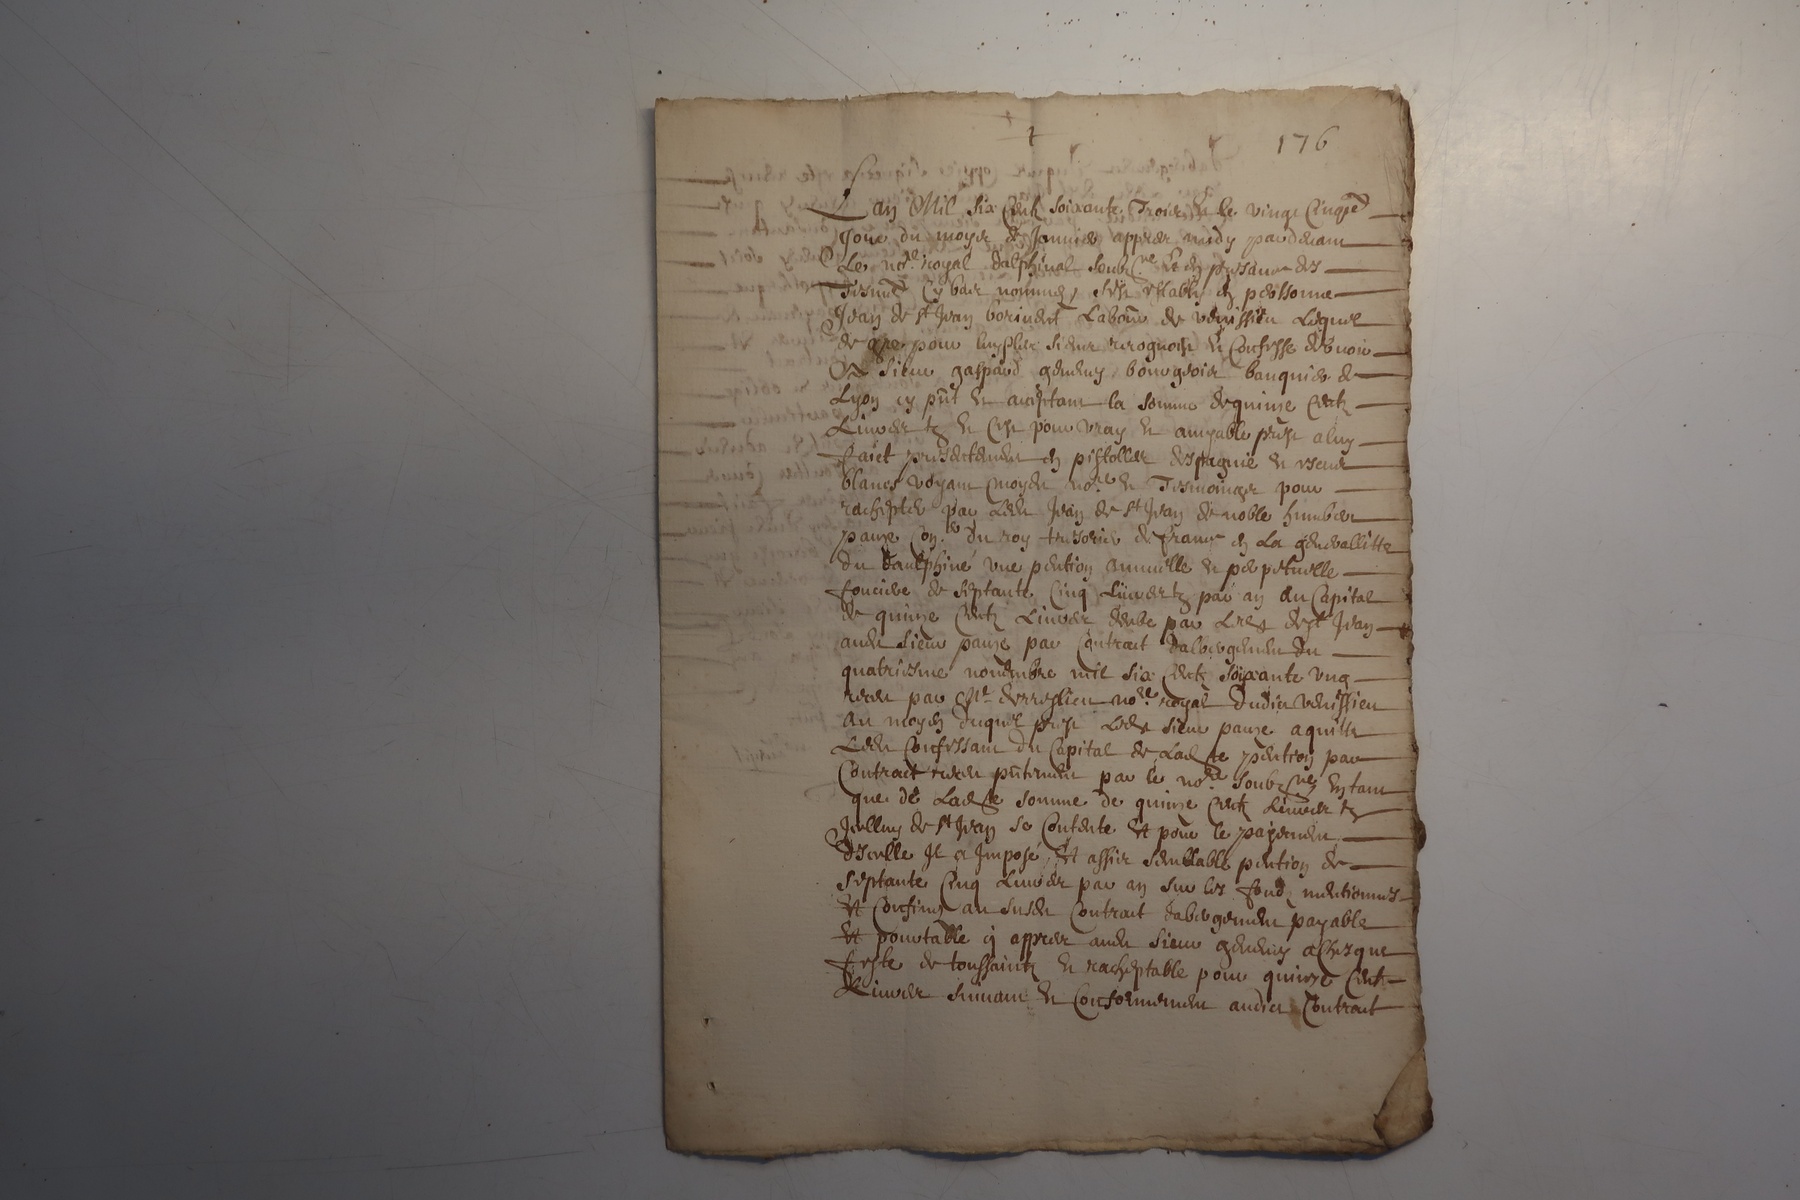 176
Lan Mil six Centz soixante Trois et le vingt Cinqe
Jour du moys de Janvier appres midy pardevant
Le nore royal dalphinal soubzne et en presance des
Tesmoyns Cy bas nommes, sest estably en personne
Jean de st Jean laboureur de venissieu Lequel
de gre pour luy et les siens recognoist et Confesse debvoir
A sieur gaspard bourgeois banquier de
Lyon cy pnt et acceptant la somme de quinze Centz
Livres tz et Cest pour vray et amyable prest a luy
faict presentement en pistolles despagnie et escus
blancs voyant moyd nore et Tesmoings pour
rachepter par Ledt Jean de st Jean de noble humbert
du roy tresorier de france en La generallitte
du daulphiné une pention annuelle et perpetuelle
fonciere de septante Cinq Livres tz par an du Capital
de quinze Centz Livres deube par Ledt de st Jean
audt sieur par Contract dalbergement du
quatriesme novembre mil six Centz soixante ung
receu par Me nore royal dudit venissieu
au moyen duquel prest Ledt sieur a quitte
Ledt Confessant du Capital de Ladte pention par
Contract receu pntement par le nore soubzne Entant
que de Ladte somme de quinze Centz Livres tz
Icelluy de st Jean se Contente Et pour le payement
dicelle Il a Imposé Et assis semblable pention de
septante Cinq Livres par an sur les fondz mentionnes
Et Confines au susdt Contract dalbergement payable
Et pourtable cy appres audt sieur a Chesque
feste de toussaintz et racheptable pour quinze Centz
Livres suivant et Conformement audict Contract